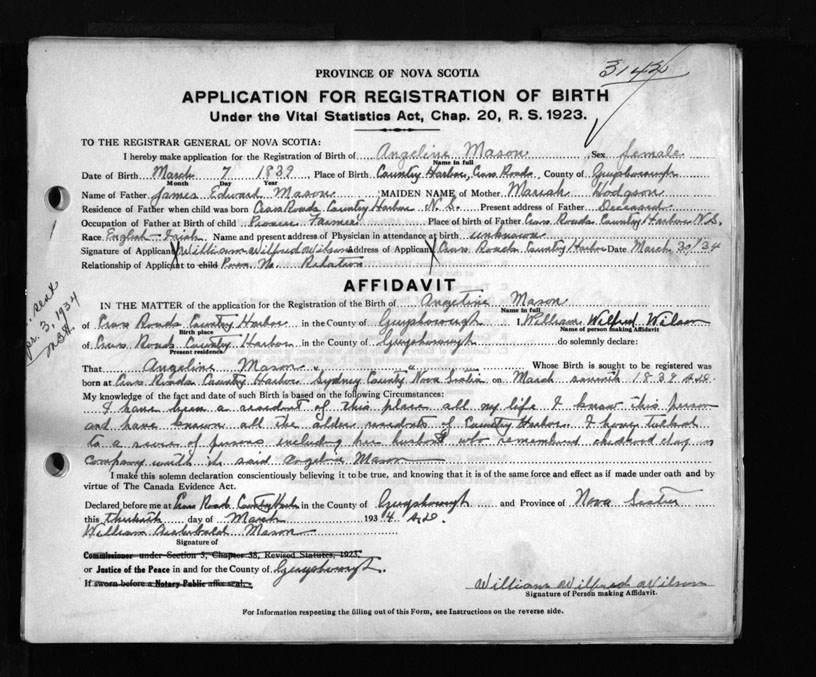 3142
PROVINCE OF NOVA SCOTIA
APPLICATION FOR REGISTRATION OF BIRTH
Under the Vital Statistics Act, Chap. 20, R. S. 1923.
TO THE REGISTRAR GENERAL OF NOVA SCOTIA:
I hereby make application for the Registration of Birth of Angeline Mason Sex female
Name in full
Date of Birth March 7 1839 Place of Birth Country Harbor, Cross Roads, County of Guysborough
Month Day Year
Name of Father James Edward Mason MAIDEN NAME of Mother Mariah Hodgson
Residence of Father when child was born Cross Roads Country Harbor N. S. Present address of Father Deceased
Occupation of Father at Birth of child Pioneer Farmer Place of birth of Father Cross Roads Country Harbor N.S.
Race English-Irish Name and present address of Physician in attendance at birth unknown
Signature of Applicant X William Wilfred Wilson Address of Applicant X Cross Roads Country Harbor Date March 30/34
Relationship of Applicant to child No Relation
AFFIDAVIT
IN THE MATTER of the application for the Registration of the Birth of Angeline Mason
Name in full
of Cross Roads Country Harbor in the County of Guysborough I, William Wilfred Wilson
Birth place Name of person making Affidavit
of Cross Roads Country Harbor in the County of Guysborough do solemnly declare:
Present residence
That Angeline Mason Whose Birth is sought to be registered was
born at Cross Roads Country Harbor Sydney County Nova Scotia on March seventh 1839 A.D.
My knowledge of the fact and date of such Birth is based on the following Circumstances:
I have been a resident of this place all my life I know this person
and have known all the older residents of Country Harbor. I have talked
to a number of persons including her husband who remembered childhood days in
company with the said Angeline Mason
I make this solemn declaration conscientiously believing it to be true, and knowing that it is of the same force and effect as if made under oath and by
virtue of The Canada Evidence Act.
Declared before me at Cross Roads Country Harbor in the County of Guysborough and Province of Nova Scotia
this thirtieth day of March 1934 A.D.
William Archibald Mason
Signature of
Commissioner under Section 3, Chapter 38, Revised Statutes, 1923.
or Justice of the Peace in and for the County of Guysborough.
If sworn before a Notary Public affix seal.
William Wilfred Wilson
Signature of Person making Affidavit.
For Information respecting the filling out of this Form, see Instructions on the reverse side.
3, 1934